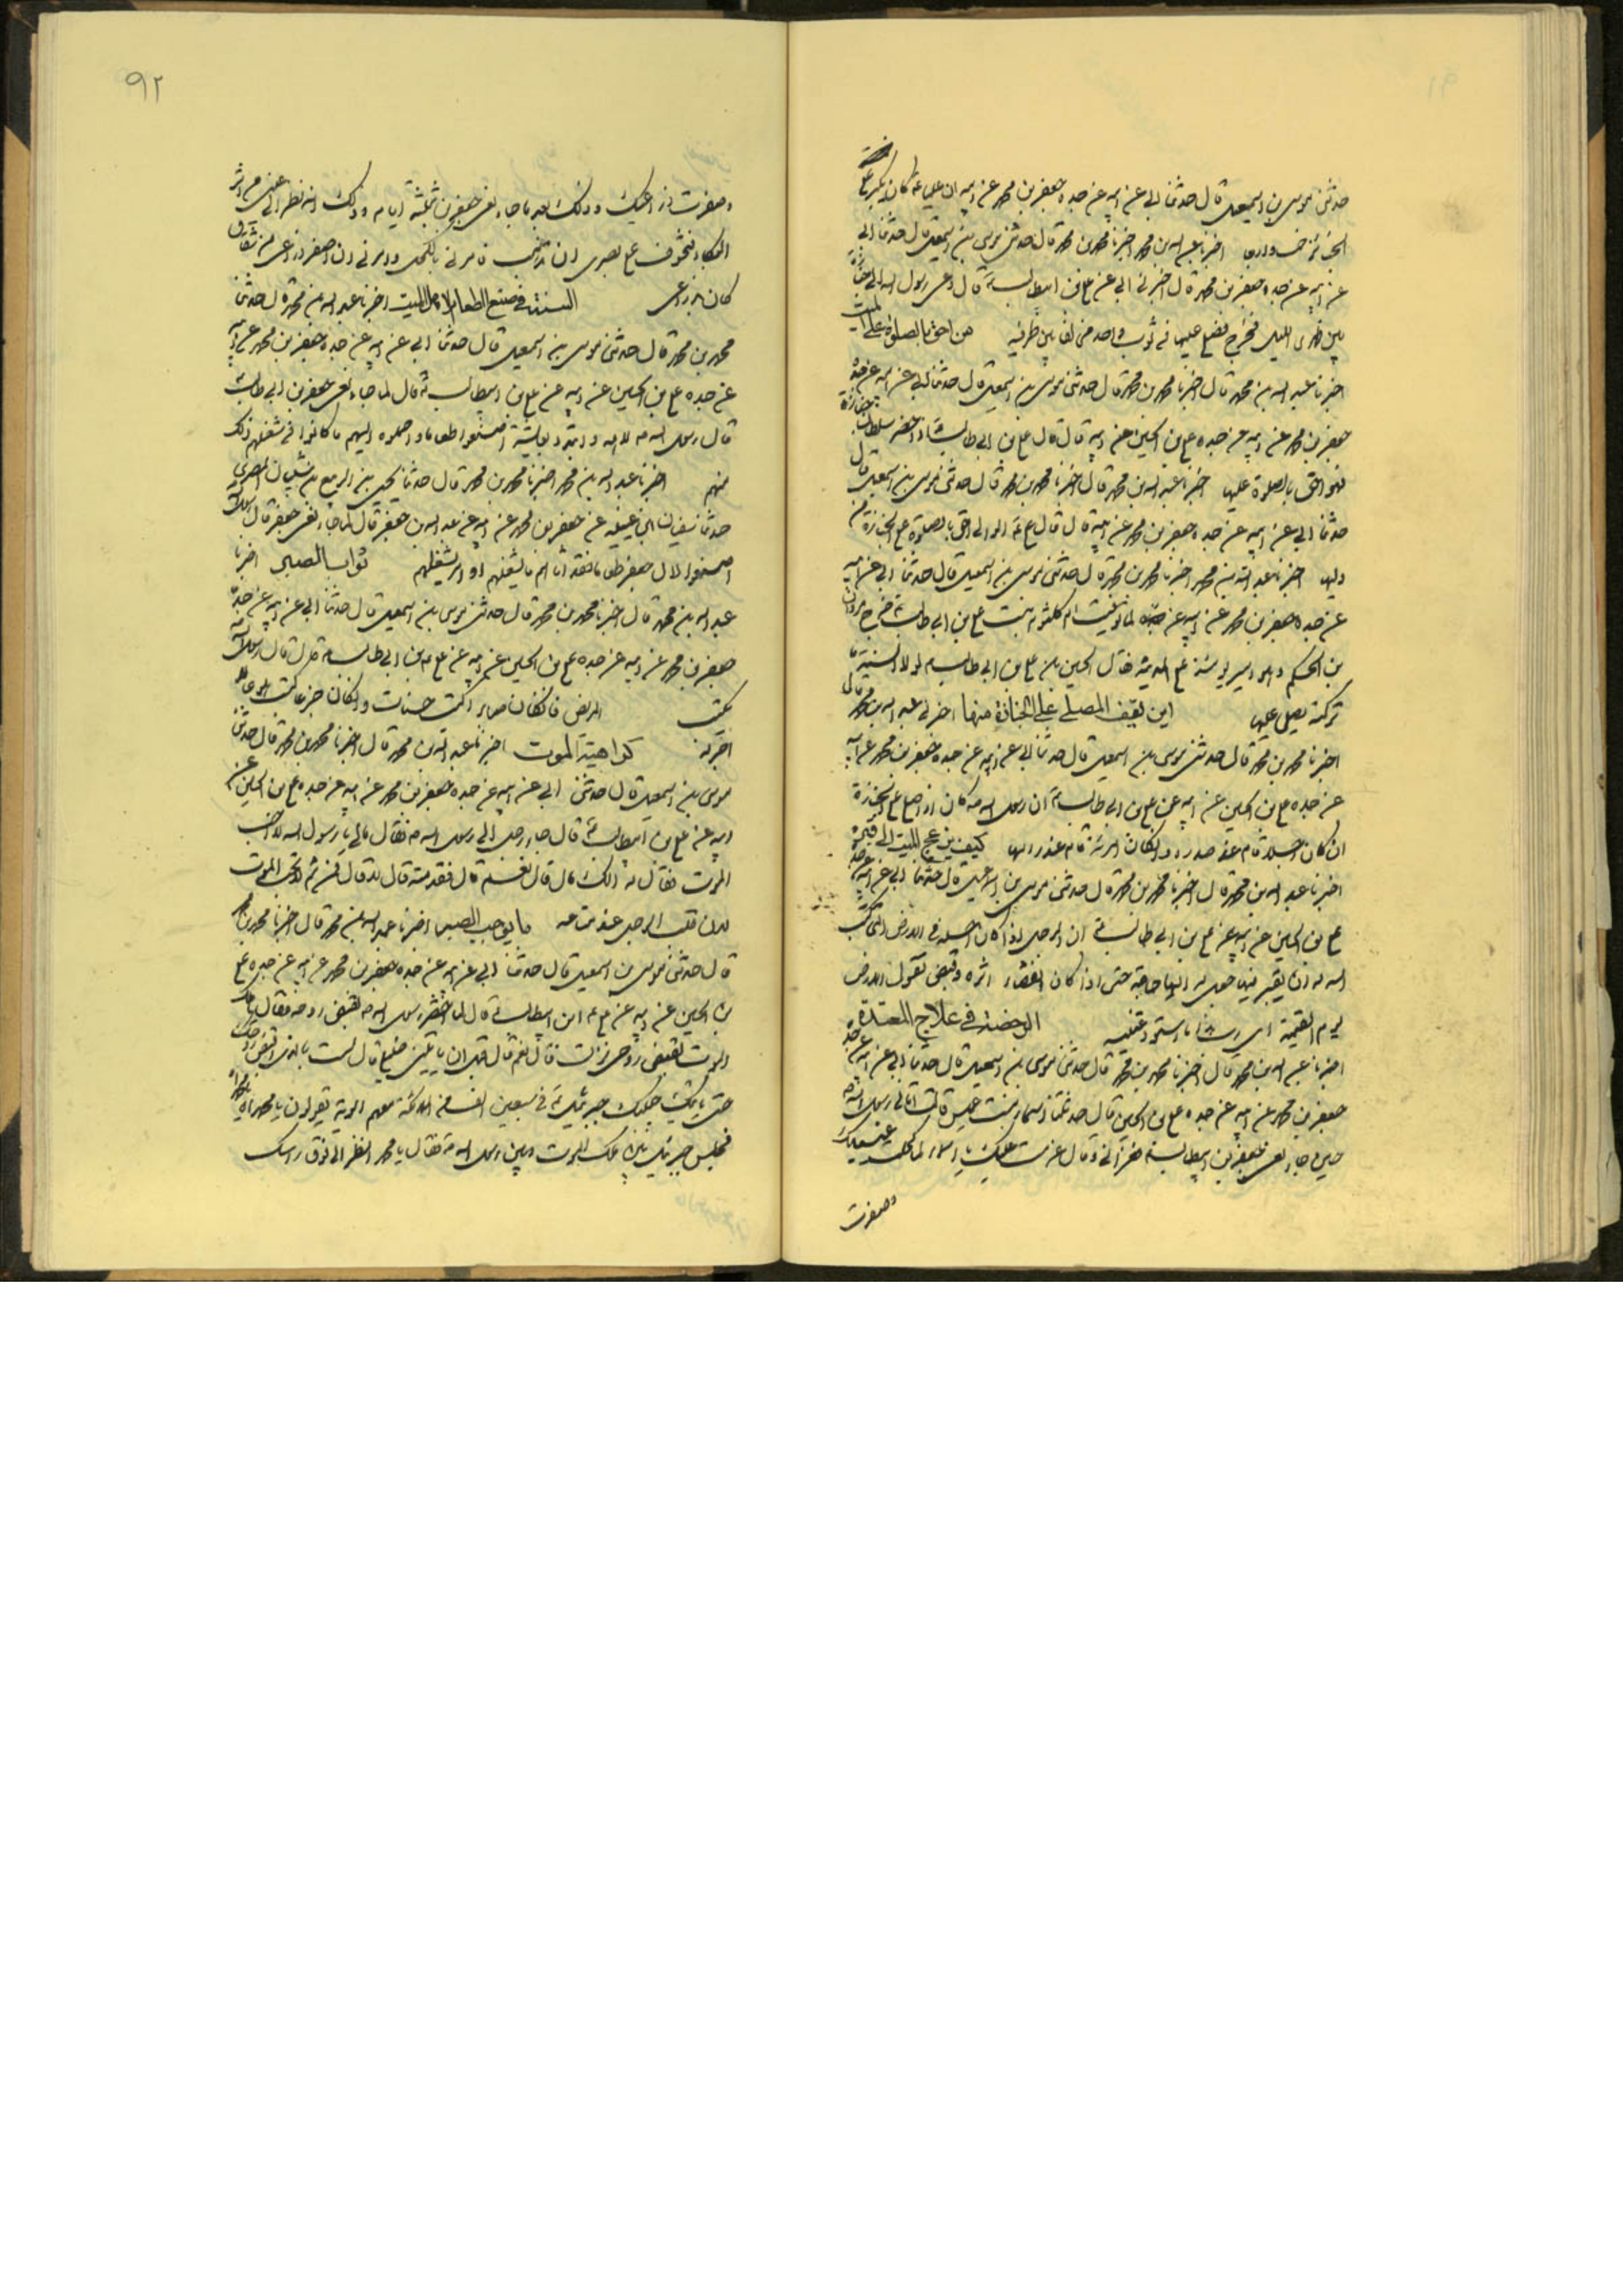 حدثنى موسى بن اسمعيل قال حدثنا ابى عن ابيه عن جده جعفر بن محمد عن ابيه ان عليا كان يكبر على
الجنائز خمسا واربعا اخبرنا عبد الله بن محمد اخبرنا محمد بن محمد قال حدثنى موسى بن اسمعيل قال حدثنا ابى
عن ابيه عن جده جعفر بن محمد قال اخبرنى ابى عن على بن ابيطالب قال دعى رسول الله الى جنازة
فصلى عليها فى ثوب واحد من احق بالصلوة على الميت
اخبرنا عبد الله بن محمد قال اخبرنا محمد بن محمد قال حدثنى موسى بن اسمعيل قال حدثنا ابى عن ابيه عن جده
جعفر بن محمد عن ابيه عن جده على بن الحسين عن ابيه قال قال على بن ابى طالب اذا حضر سلطان جنازة
فهو احق بالصلوة عليها اخبرنا عبد الله بن محمد قال اخبرنا محمد بن محمد قال حدثنى موسى بن اسمعيل قال
حدثنا ابى عن ابيه عن جده جعفر بن محمد عن ابيه قال قال على الوالى احق بالصلوة على الجنازة من
وليها اخبرنا عبد الله بن محمد اخبرنا محمد بن محمد قال حدثنى موسى بن اسمعيل قال حدثنا ابى عن ابيه
عن جده جعفر بن محمد عن ابيه عن جده لما توفيت ام كلثوم بنت على بن ابى طالب خرج مروان
بن الحكم وهو امير يومئذ على المدينة فقال الحسين بن على بن ابى طالب لولا السنة ما
تركته يصلى عليها اين يقف المصلى على الجنازة منها اخبرنى عبد الله بن محمد قال
اخبرنا محمد بن محمد قال حدثنى موسى بن اسمعيل قال حدثنا ابى عن ابيه عن جده جعفر بن محمد عن ابيه
عن جده على بن الحسين عن ابيه عن على بن ابى طالب ان رسول الله كان اذا صلى على الجنازة
ان كان رجلا قام عند صدره وان كان امرئة قام عند راسها كيف يزعج الميت الى قبره
اخبرنا عبد الله بن محمد قال اخبرنا محمد بن محمد قال حدثنى موسى بن اسمعيل قال حدثنا ابى عن ابيه عن جده
على بن الحسين عن ابيه عن على بن ابى طالب ان الرجل اذا كان اجله فى الارض التى كتب
الله له ان يقبر فيها جعل له اليها حاجة حتى اذا كان اثره وقبض تقول الارض
يوم القيمة اى رب هذا ما استودعتنيه الرخصة فى علاج المعتدة
اخبرنا عبد الله بن محمد قال اخبرنا محمد بن محمد قال حدثنى موسى بن اسمعيل قال حدثنا ابى عن ابيه عن جده
جعفر بن محمد عن ابيه عن جده على بن الحسين قال حدثتنا اسماء بنت عميس قالت اتانى رسول الله
حين جاء نعى جعفر بن ابيطالب
وصفرت
٩٢
وصفرت ذراعيك وذلك بعد ما جاء نعى جعفر بن ثلثة ايام وذلك انه نظر الى عينى من اثر
البكاء فتخوف على بصرى ان يذهب فامرنى بالكحل وامرنى ان اصفر ذراعى من شقاق
كان بذراعى السنة فى صنع الطعام لاهل الميت اخبرنا عبد الله بن محمد قال حدثنا
محمد بن محمد قال حدثنى موسى بن اسمعيل قال حدثنا ابى عن ابيه عن جده جعفر بن محمد عن ابيه
عن جده على بن الحسين عن ابيه عن على بن ابيطالب قال لما جاء نعى جعفر بن ابى طالب
قال رسول الله لاهله وابتدء بعايشة اصنعوا طعاما واحملوه اليهم ما كانوا فى شغلهم ذلك
منهم اخبرنا عبد الله بن محمد اخبرنا محمد بن محمد قال حدثنا يحيى بن الربيع بن سليمان المصرى
حدثنا سفيان ابن عيينه عن جعفر بن محمد عن ابيه عن عبد الله بن جعفر قال لما جاء نعى جعفر قال رسول الله
اصنعوا لال جعفر طعاما فقد اتاهم ما يشغلهم او امر يشغلهم ثواب الصبر اخبرنا
عبد الله بن محمد قال اخبرنا محمد بن محمد قال حدثنى موسى بن اسمعيل قال حدثنا ابى عن ابيه عن جده
جعفر بن محمد عن ابيه عن جده على بن الحسين عن ابيه عن على بن ابى طالب قال قال رسول الله
يكتب المريض فان كان صابرا كتب حسنات وان كان جزعا كتب هلوعا لا
اجر له كراهية الموت اخبرنا عبد الله بن محمد قال اخبرنا محمد بن محمد قال حدثنى
موسى بن اسمعيل قال حدثنى ابى عن ابيه عن جده جعفر بن محمد عن ابيه عن جده على بن الحسين عن
ابيه عن على بن ابيطالب قال جاء رجل الى رسول الله فقال مالى يا رسول الله لا احب
الموت فقال له الك مال قال نعم قال فقدمته قال لا قال فمن ثم لا تحب الموت
لان قلب الرجل عند متاعه ما يوجب الصبر اخبرنا عبد الله بن محمد قال اخبرنا محمد بن محمد
قال حدثنى موسى بن اسمعيل قال حدثنا ابى عن ابيه عن جده جعفر بن محمد عن ابيه عن جده على
بن الحسين عن ابيه عن على ابن ابيطالب قال لما احتضر رسول الله فقال ملك
الموت
حتى ياتيك جبرئيل فى سبعين الف من الملائكة معهم يقولون يا محمداه
فجلس جبرئيل ملك الموت وبين رسول الله فقال يا محمد انظر الى فوق راسك